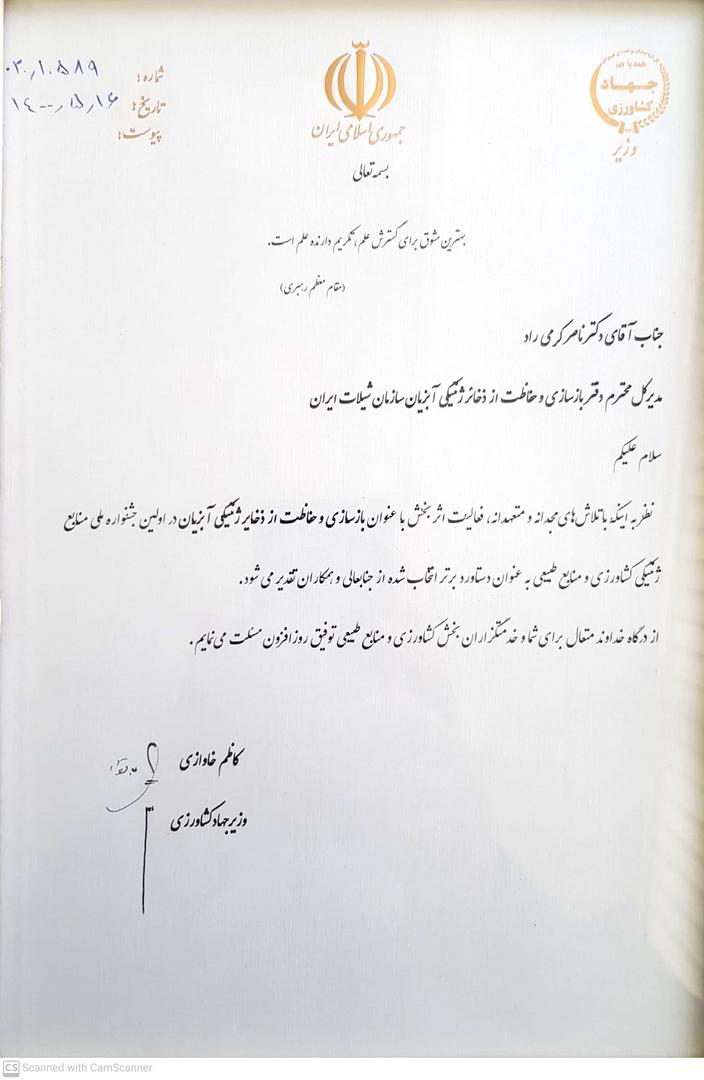 همه با هم
جهاد
کشاورزی
وزیر
جمهوری اسلامی ایران
شماره: ۰۲۰/۱۰۵۸۹
تاریخ: ۱۴۰۰/۵/۱۶
پیوست:
بسمه تعالی
بهترین مشوق برای گسترش علم، تکریم دارنده علم است.
(مقام معظم رهبری)
جناب آقای دکتر ناصر کرمی راد
مدیرکل محترم دفتر بازسازی و حفاظت از ذخائر ژنتیکی آبزیان سازمان شیلات ایران
سلام علیکم
نظر به اینکه با تلاش‌های مجدانه و متعهدانه، فعالیت اثر بخش با عنوان بازسازی و حفاظت از ذخایر ژنتیکی آبزیان در اولین جشنواره ملی منابع
ژنتیکی کشاورزی و منابع طبیعی به عنوان دستاورد برتر انتخاب شده از جنابعالی و همکاران تقدیر می شود.
از درگاه خداوند متعال برای شما و خدمتگزاران بخش کشاورزی و منابع طبیعی توفیق روزافزون مسئلت می‌نمایم.
کاظم خاوازی
وزیر جهاد کشاورزی
CS Scanned with CamScanner